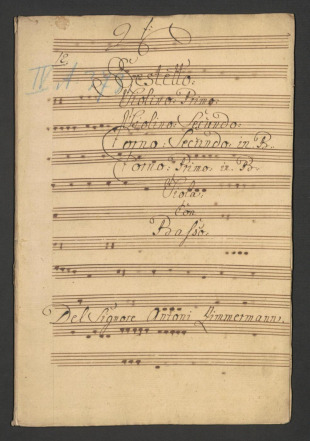 12
Sestetto.
Violino: Primo:
Violino: Secundo.
Corno: Secundo in B.
Corno: Primo in B.
Viola.
Con
Basso.
Del Signore Antoni Zimmermann.